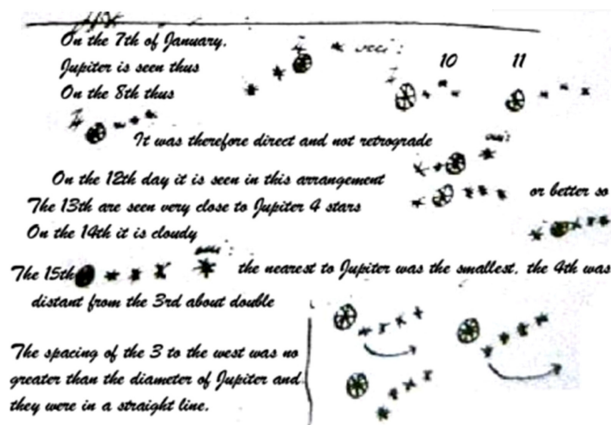 On the 7th of January.
Jupiter is seen thus
On the 8th thus
10 11
It was therefore direct and not retrograde
On the 12th day it is seen in this arrangement
The 13th are seen very close to Jupiter 4 stars or better so
On the 14th it is cloudy
The 15th the nearest to Jupiter was the smallest. the 4th was
distant from the 3rd about double
The spacing of the 3 to the west was no
greater than the diameter of Jupiter and
they were in a straight line.